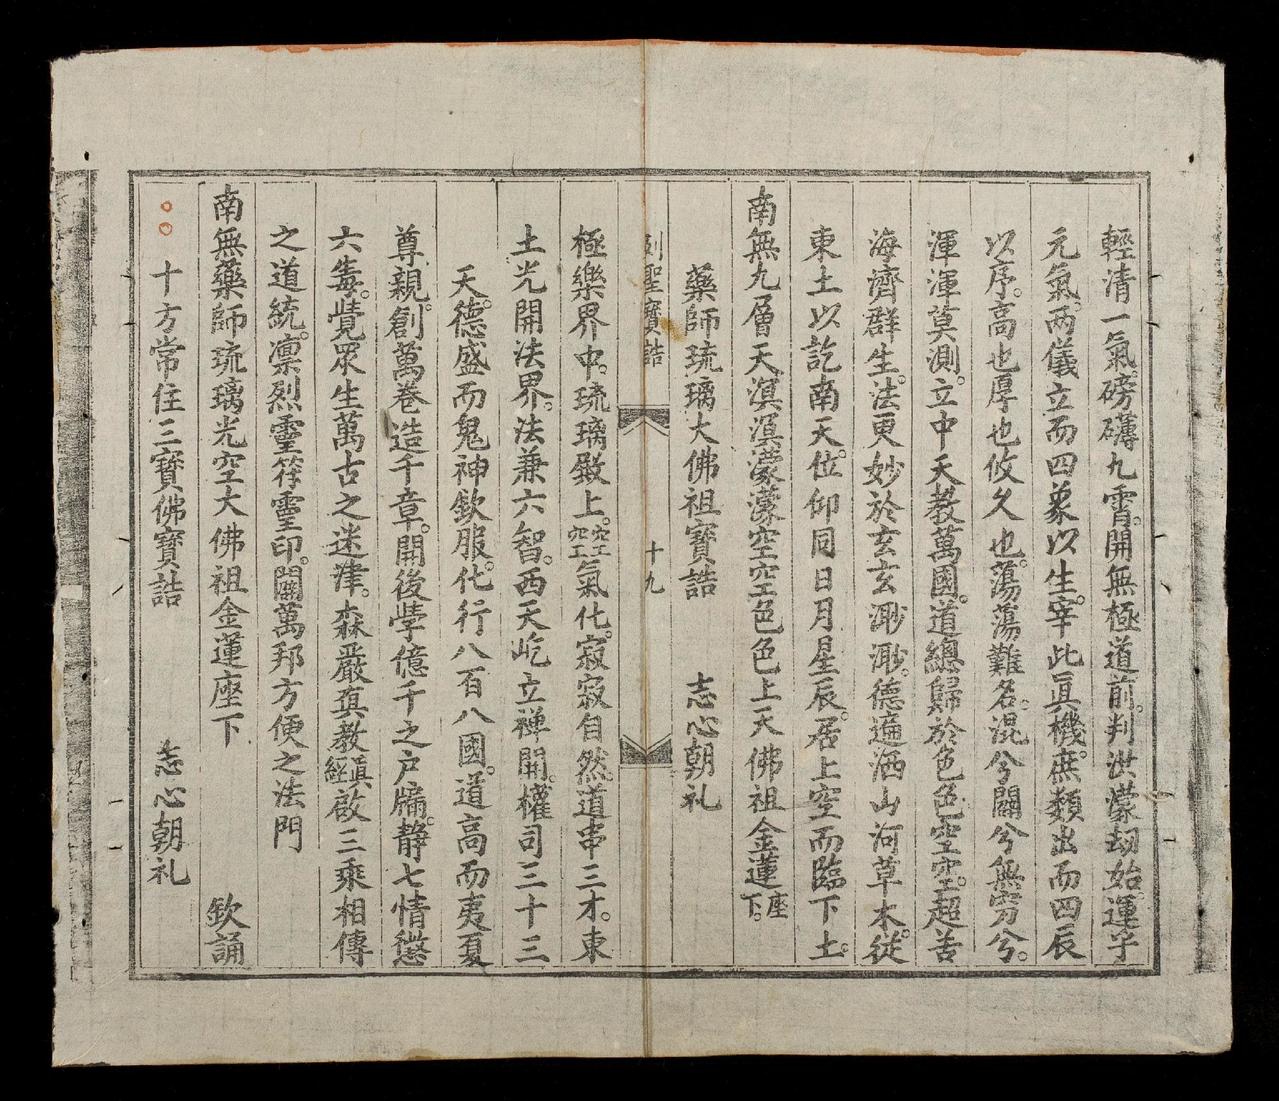 輕清一氣。磅礴九霄。開無極道前。判洪濛刼始。運乎
元氣。兩儀立而四象以生。宰此眞機。庶類出而四辰
以序。高也厚也攸久也。蕩蕩難名。混兮闢兮無穷兮。
渾渾莫測。立中天教萬國。道總歸於色色空空。超苦
海濟群生。法更妙於玄玄渺渺。德遍洒山河草木。從
東土以訖南天。位仰同日月星辰。居上空而臨下土。
南無九層天溟溟濛濛空空色色上天佛祖金蓮座下。
藥師琉璃大佛祖寶誥 志心朝礼
列聖寶誥 十九
極樂界中。琉璃殿上。空空氣化。寂寂自然。道串三才。東
土光開法界。法兼六智。西天屹立禅開。權司三十三
天。德盛而鬼神欽服。化行八百八國。道高而夷夏
尊親。創萬卷造千章。開後學億千之户牖。静七情懲
六毒。覺眾生萬古之迷津。森嚴眞教眞經啟三乘相傳
之道統。凛烈靈符靈印。闢萬邦方便之法門
南無藥師琉璃光空大佛祖金蓮座下 欽誦
十方常住三寶佛寶誥 志心朝礼